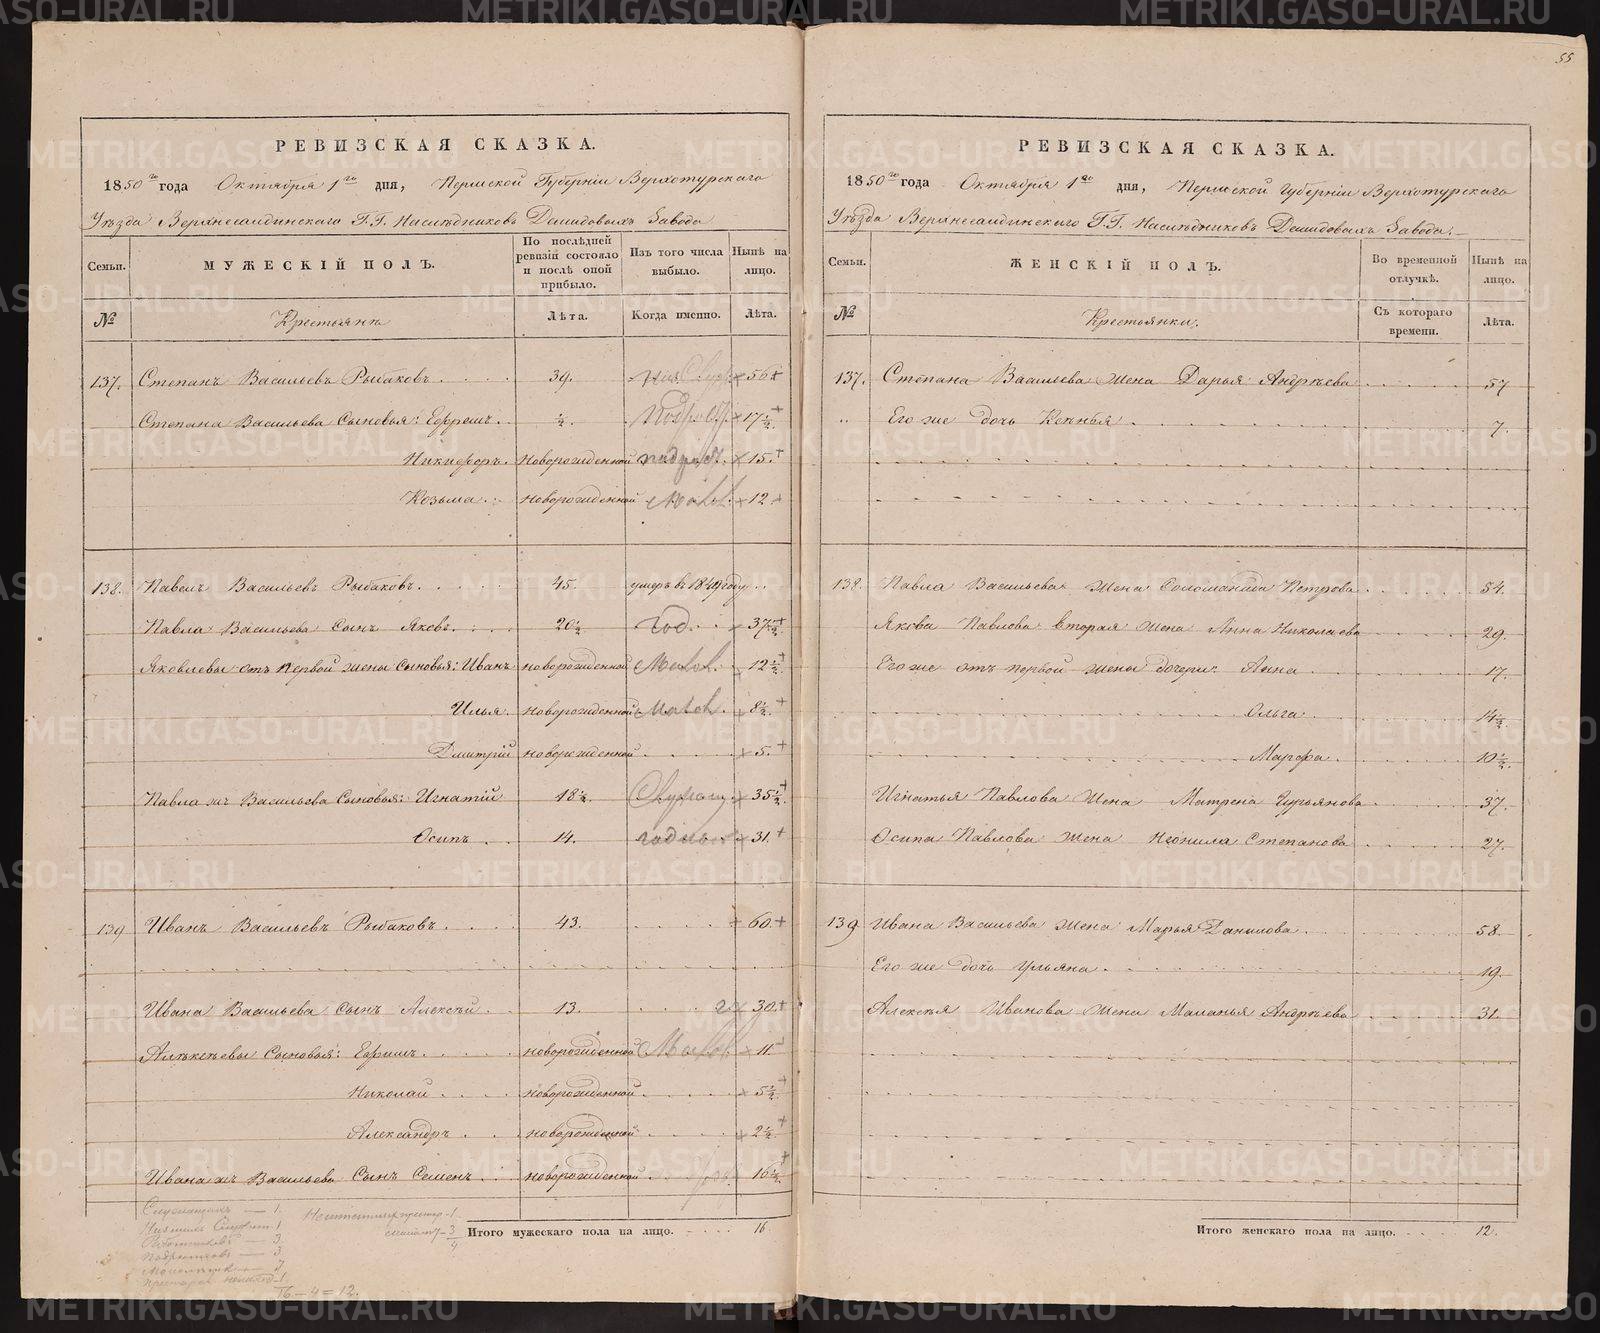 55
РЕВИЗСКАЯ СКАЗКА.
1850го года Октября 1го дня, Пермской Губерніи Верхотурскаго
Уѣзда Верхнесалдинскаго Г.Г. Наслѣдниковъ Демидовыхъ Завода
Семьи.
МУЖЕСКІЙ ПОЛЪ.
По послѣдней ревизіи состояло и послѣ оной прибыло.
Изъ того числа выбыло.
Нынѣ на лицо.
№
Крестьянъ
Лѣта.
Когда именно.
Лѣта.
137. Степанъ Васильевъ Рыбаковъ 39. 56
Степана Васильева Сыновья: Ефремъ ½. 17½
Никифоръ. новорожденной 15.
Козьма новорожденной 12
138. Павелъ Васильевъ Рыбаковъ 45. умеръ въ 1849 году
Павла Васильева Сынъ Яковъ 20½ год. 37½
Яковлевы отъ первой жены Сыновья: Иванъ новорожденной 12½
Илья новорожденной 8½
Дмитрій новорожденной 5.
Павла жъ Васильева Сыновья: Игнатій 18½. 35½
Осипъ 14. 31.
139 Иванъ Васильевъ Рыбаковъ 43. 60
Ивана Васильева Сынъ Алексѣй 13. 30.
Алексѣевы Сыновья: Ефимъ новорожденной 11.
Николай новорожденной 5½
Александръ новорожденной 2½
Ивана жъ Васильева Сынъ Семенъ новорожденной 16½
Итого мужескаго пола на лицо. 16
16 - 4 = 12.
РЕВИЗСКАЯ СКАЗКА.
1850го года Октября 1го дня, Пермской Губерніи Верхотурскаго
Уѣзда Верхнесалдинскаго Г.Г. Наслѣдниковъ Демидовыхъ Завода.
Семьи.
ЖЕНСКІЙ ПОЛЪ.
Во временной отлучкѣ.
Нынѣ на лицо.
№
Крестьянки.
Съ котораго времени.
Лѣта.
137. Степана Васильева жена Дарья Андрѣева 57
Его же дочь 7.
138. Павла Васильева жена Соломанида Петрова 54.
Якова Павлова вторая жена Анна Николаева 29.
Его же отъ первой жены дочери: Анна 17.
Ольга 14½
Марфа 10½
Игнатья Павлова жена Матрена Гурьянова 37.
Осипа Павлова жена Неонила Степанова 27.
139 Ивана Васильева жена Марья Данилова 58.
Его же дочь Ульяна 19.
Алексѣя Иванова жена Маланья Андрѣева 31
Итого женскаго пола на лицо. 12.
METRIKI.GASO-URAL.RU